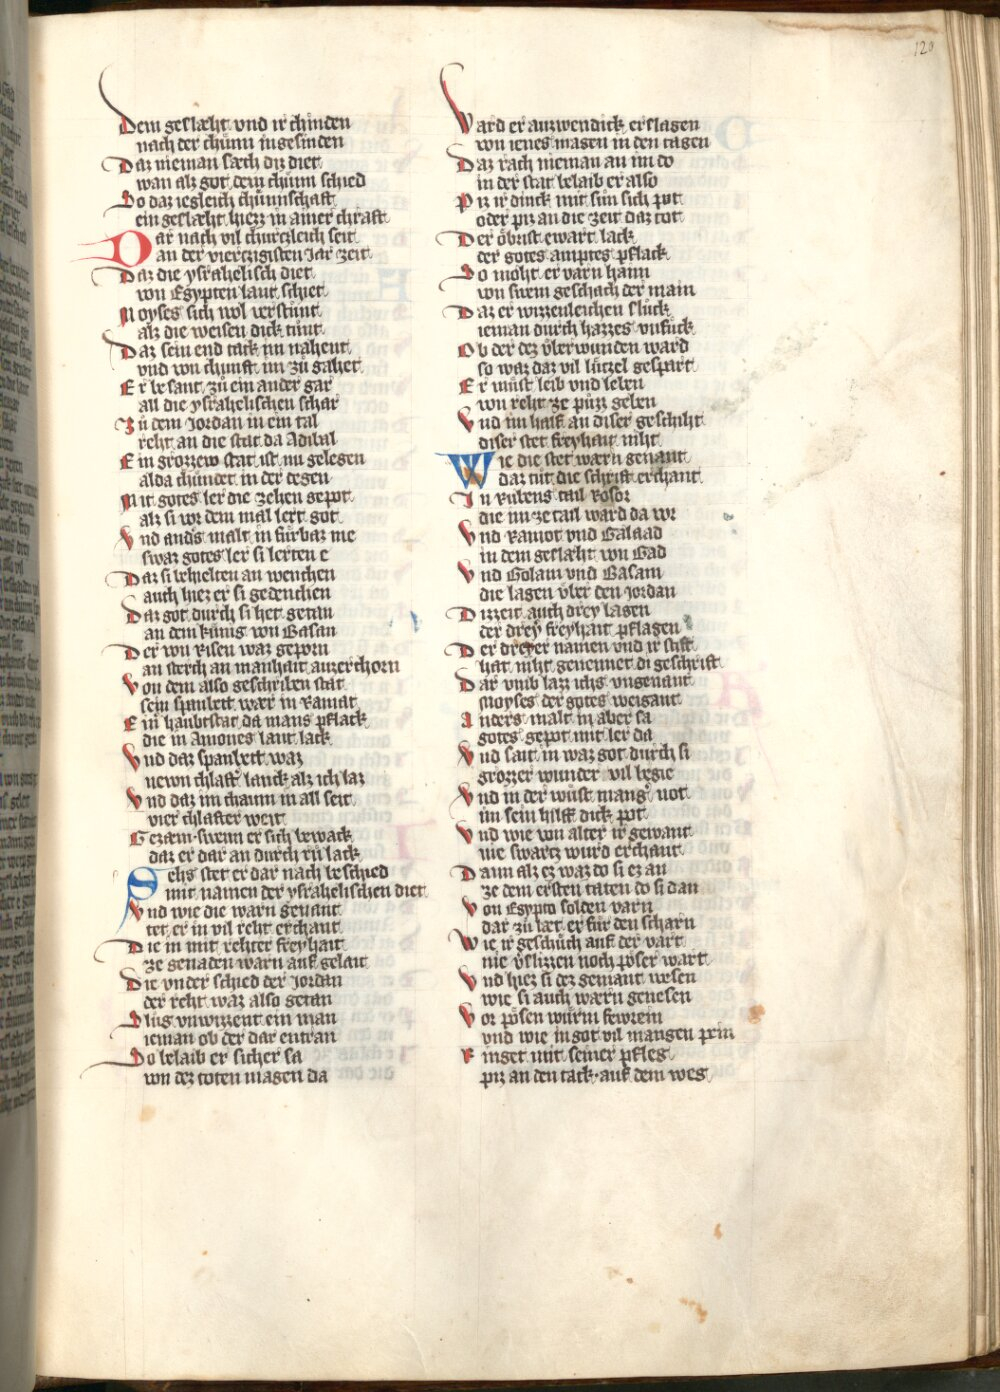 120
Dem geslæht vnd ir chinden
nach der chunn ingesinden
Daz nieman sæch diz diet
wan alz got dem chunn schied
So daz iesleich chunnschaft
ein geslæht hiezz in ainer chraft
Dar nach vil churczleich seit
an der vierczigisten Jar zeit
Daz die ysrahelisch diet
von Egypten lant schiet
Moyses sich wol verstünt
alz die weisen dick tünt
Daz sein end tack im nahent
vnd von chunft im zü gahet
Er besant zü ein ander gar
all die ysrahelischen schar
Zü dem Jordan in ein tal
reht an die stat da Adibal
Ein grozzew stat ist nu gelegen
alda chündet in der degen
Mit gotes ler die zehen gepot
alz si vor dem mal lert got
Vnd anders malt in fürbaz me
swaz gotes ler si lerten e
Daz si behielten an wenchen
auch hiez er si gedenchen
Daz got durch si het getan
an dem künig von Basan
Der von Risen waz geporn
an sterch an manhait auzerchorn
Von dem also geschriben stat
sein spanbett wær in Ramat
Ein haubtstat da mans pflack
die in Amones lant lack
Vnd daz spanbett waz
newn chlaft lanck alz ich laz
Vnd daz im chaum in all seit
vier chlafter weit
Gezæm swenn er sich bewack
daz er dar an durch rü lack
Sehs stet er dar nach beschied
mit namen der ysrahelischen diet
Vnd wie die warn genant
tet er in vil reht erchant
Die in mit rehter freyhait
ze genaden warn auf geleit
Die vnder schied der Jordan
der reht waz also getan
Slüg vnwizzent ein man
ieman ob der dar entran
So belaib er sicher sa
von dez toten magen da
Ward er auzwendick erslagen
von ienes magen in den tagen
Daz rach nieman an im do
in der stat belaib er also
Piz ir dinck mit sün sich pot
oder piz an die zeit daz tot
Der öbrist ewart lack
der gotes amptes pflack
So moht er varn hann
von swem geschach der main
Daz er wizzenleichen slück
ieman durch hazzes vnfück
Ob der dez vberwunden ward
so waz daz vil lützel gespart
Er müst leib vnd leben
von reht ze püzz geben
Vnd im half an diser geschiht
diser stet freyhait niht
Wie die stet warn genant
daz tüt die schrift erchant
In Rubens tail Bosor
die im ze tail ward da vor
Vnd Ramot vnd Galaad
in dem geslæht von Gad
Vnd Golam vnd Basam
die lagen vber den Jordan
Dizzeit auch drey lagen
der drey freyhait pflagen
Der dreyer namen vnd ir stift
hat niht genennet di geschrift
Dar vmb lazz ichs vngenant
Moyses der gotes weigant
Anders malt in aber sa
gotes gepot mit ler da
Vnd sait in waz got durch si
grozzer wunder vil begie
Vnd in der wüst mang not
im sein hilff dick pot
Vnd wie von alter ir gewant
nie swartz wurd erchant
Dann alz ez waz do si ez an
ze dem ersten taten do si dan
Von Egypto solden varn
dar zü læt er für den scharn
Wie ir geschüch auf der vart
nie vslizzen noch pöser wart
Vnd hiez si dez gemant wesen
wie si auch warn genesen
Vor pösen würm fewrein
vnd wie in got vil mangen pein
Ringet mit seiner pfleg
piz an den tack auf dem weg